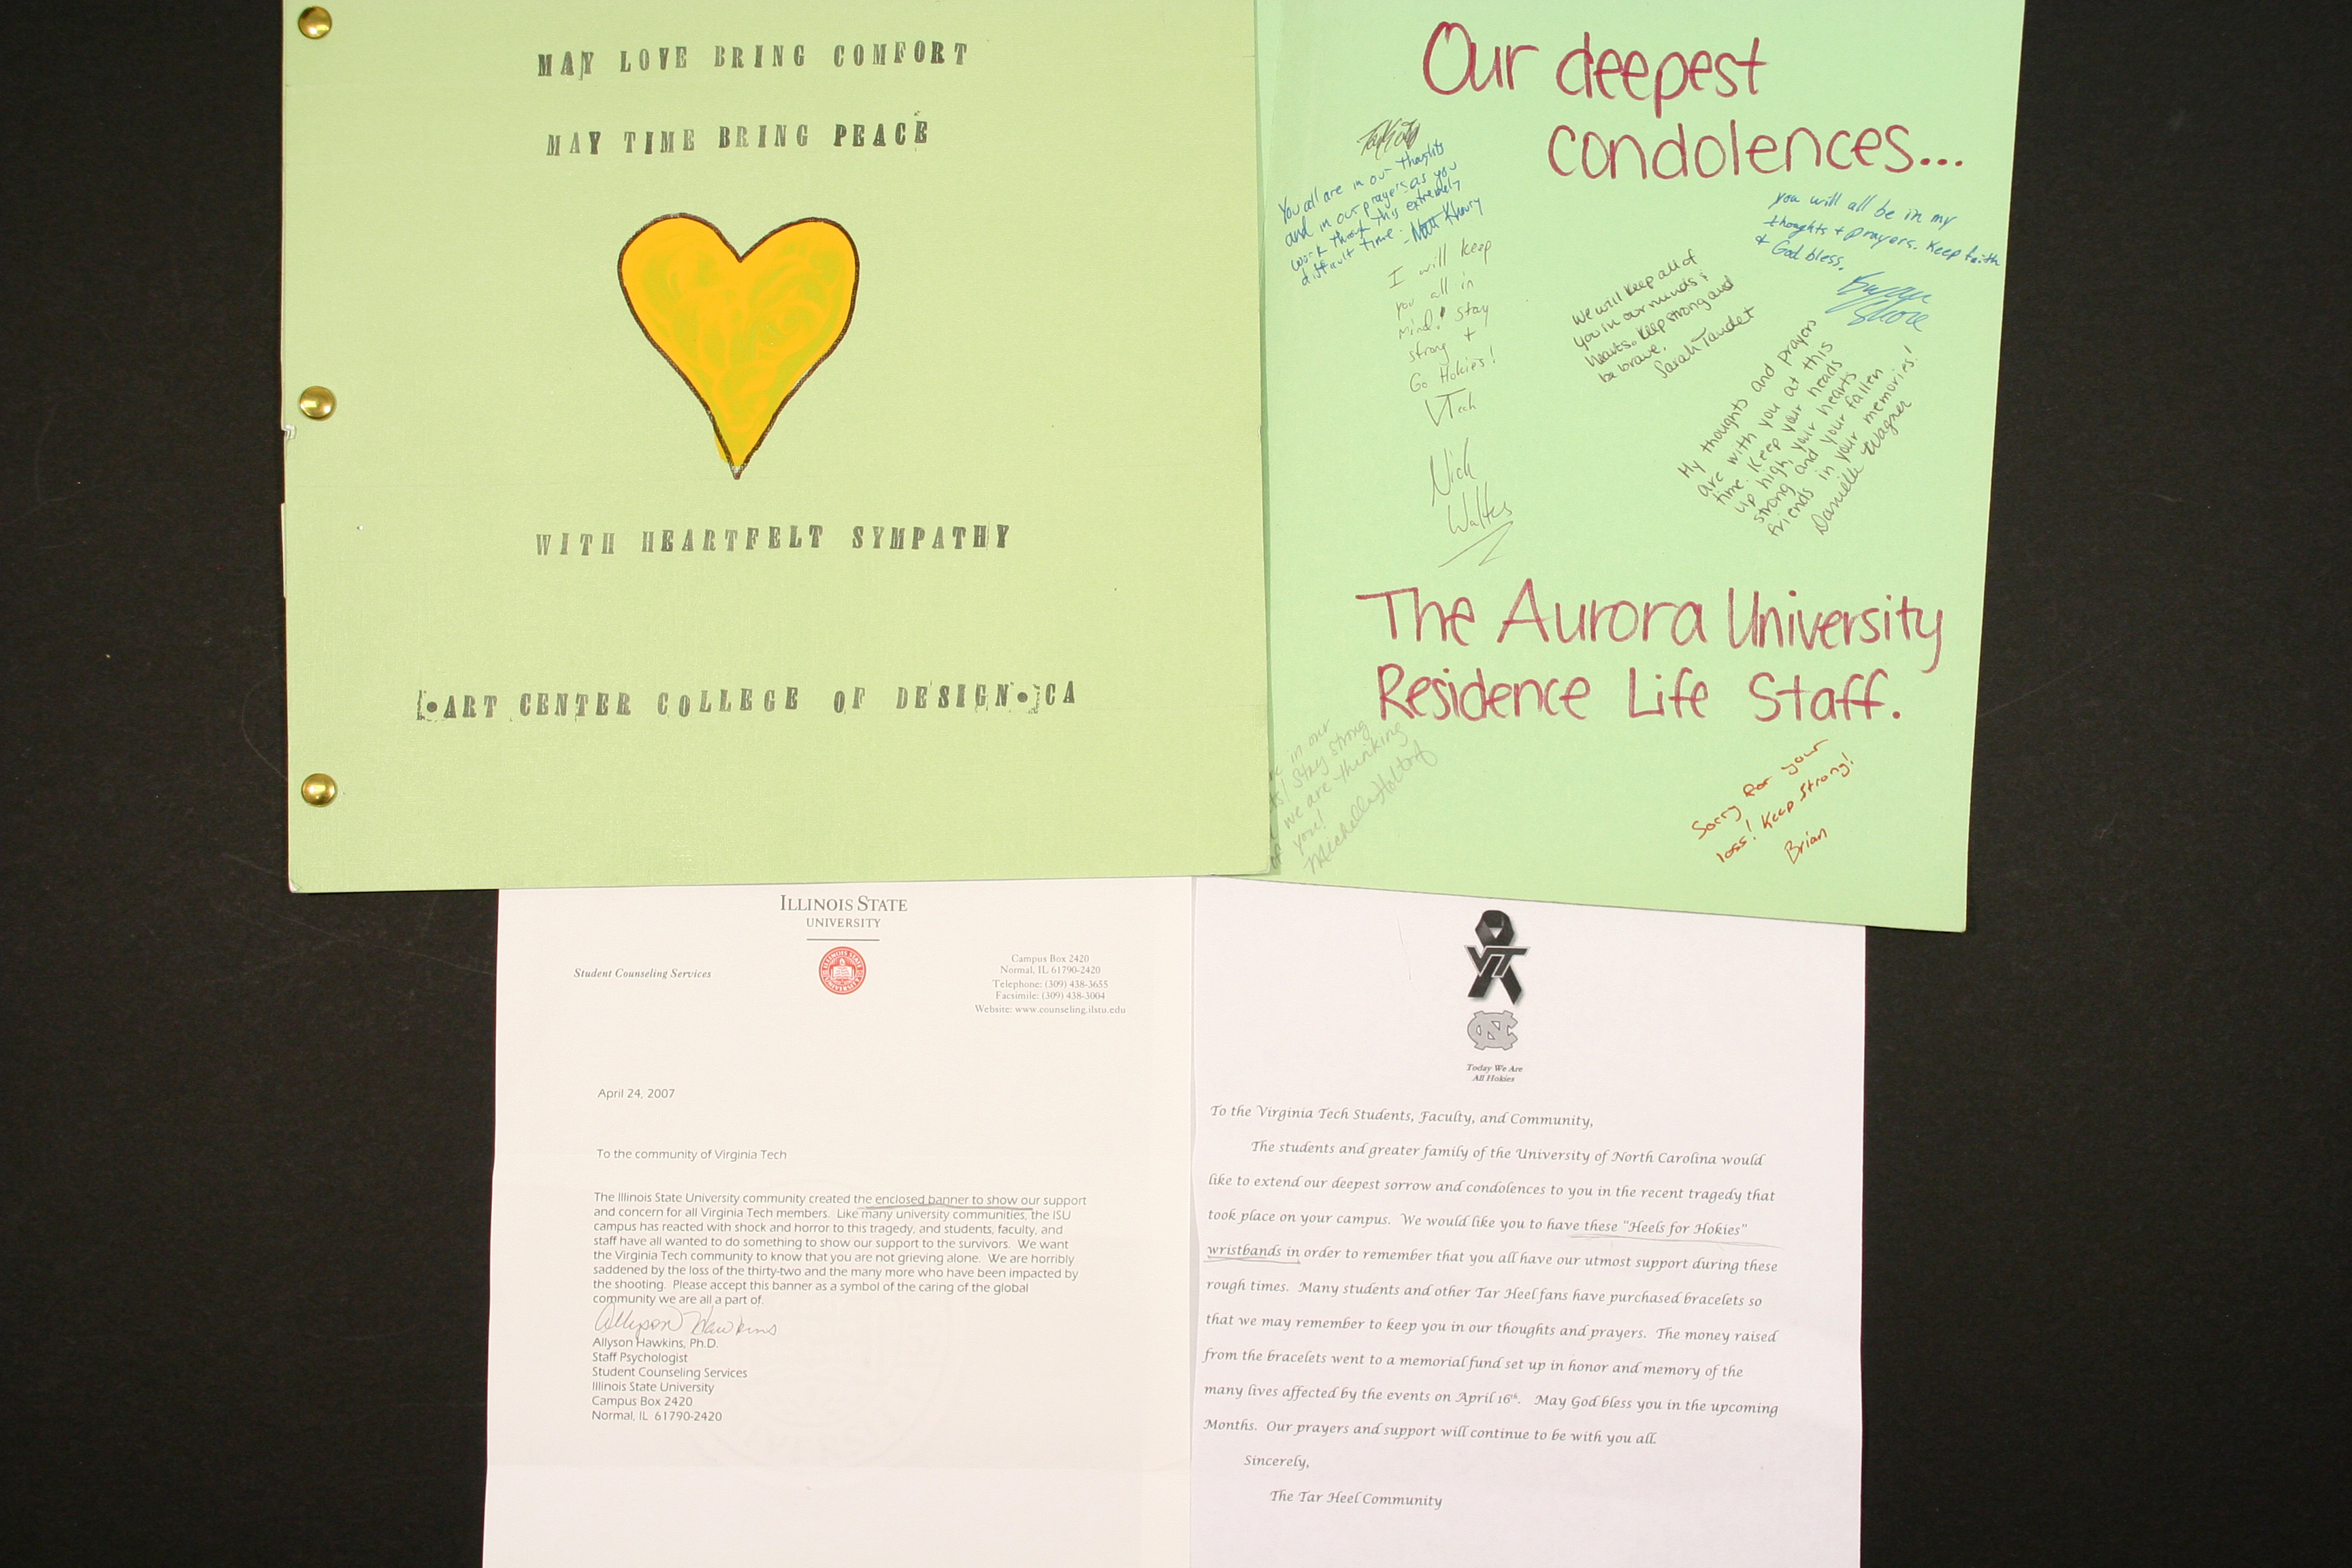 MAY LOVE BRING COMFORT
MAY TIME BRING PEACE
WITH HEARTFELT SYMPATHY
[•ART CENTER COLLEGE OF DESIGN•]CA
Our deepest
condolences...
You all are in our thoughts
and in our prayers as you
work through this extremely
difficult time.
- Matt Khoury
I will keep
you all in
mind! Stay
strong +
Go Hokies!
VTech
Nick
Walters
We will keep all of
you in our minds &
hearts. Keep strong and
be brave.
Sarah Taudet
you will all be in my
thoughts + prayers. Keep faith
+ God bless.
My thoughts and prayers
are with you at this
time. Keep your heads
up high, your hearts
strong and your fallen
friends in your memories!
Danielle Wagner
The Aurora University
Residence Life Staff.
in our
Stay strong
we are thinking
of you!
Michelle Holtorf
Sorry for your
loss! Keep Strong!
Brian
ILLINOIS STATE
UNIVERSITY
Student Counseling Services
Campus Box 2420
Normal, IL 61790-2420
Telephone: (309) 438-3655
Facsimile: (309) 438-3004
Website: www.counseling.ilstu.edu
April 24, 2007
To the community of Virginia Tech
The Illinois State University community created the enclosed banner to show our support
and concern for all Virginia Tech members. Like many university communities, the ISU
campus has reacted with shock and horror to this tragedy, and students, faculty, and
staff have all wanted to do something to show our support to the survivors. We want
the Virginia Tech community to know that you are not grieving alone. We are horribly
saddened by the loss of the thirty-two and the many more who have been impacted by
the shooting. Please accept this banner as a symbol of the caring of the global
community we are all a part of.
Allyson Hawkins
Allyson Hawkins, Ph.D.
Staff Psychologist
Student Counseling Services
Illinois State University
Campus Box 2420
Normal, IL 61790-2420
VT
NC
Today We Are
All Hokies
To the Virginia Tech Students, Faculty, and Community,
The students and greater family of the University of North Carolina would
like to extend our deepest sorrow and condolences to you in the recent tragedy that
took place on your campus. We would like you to have these "Heels for Hokies"
wristbands in order to remember that you all have our utmost support during these
rough times. Many students and other Tar Heel fans have purchased bracelets so
that we may remember to keep you in our thoughts and prayers. The money raised
from the bracelets went to a memorial fund set up in honor and memory of the
many lives affected by the events on April 16th. May God bless you in the upcoming
Months. Our prayers and support will continue to be with you all.
Sincerely,
The Tar Heel Community